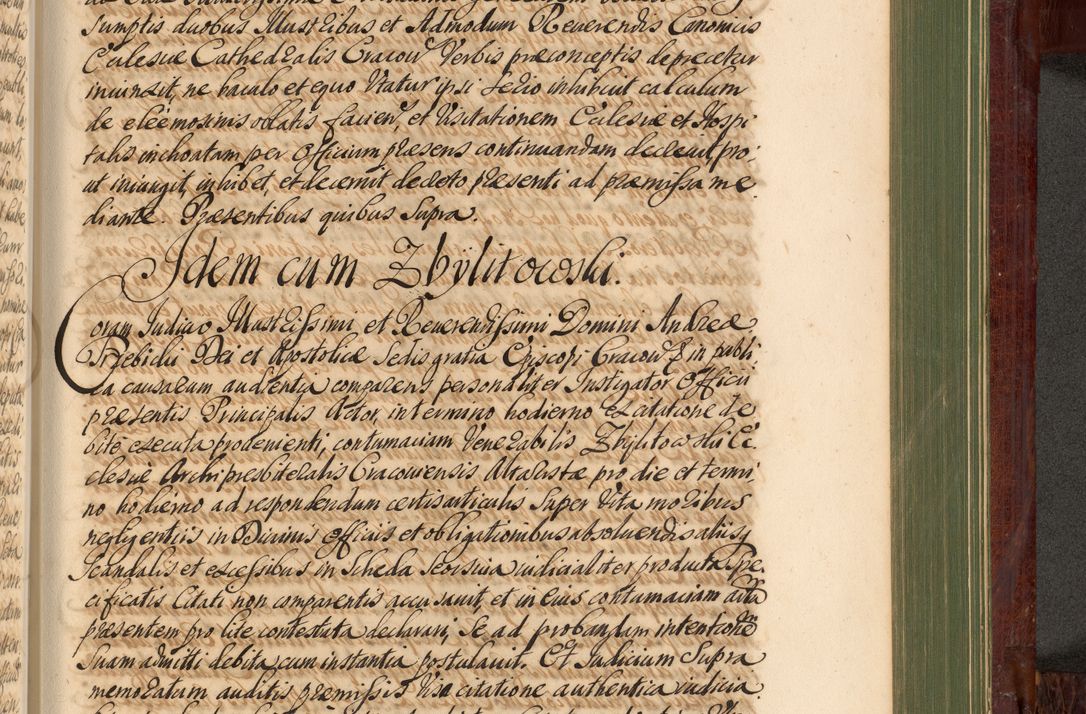 sumptis duobus Illustribus et Admodum Reuerendis Canonicis
Ecclesiæ Cathedralis Cracou: Verbis præconceptis deprecetur
iniunxit, ne baculo et equo Vtatur ipsi serio inhibuit calculum
de eleemosinis oblatis facien, et Visitationem Ecclesiæ et Hospi
talis inchoatam per Officium præsens continuandam decreuit, pro:
ut iniungit, inhibet et decernit decreto præsenti ad præmissa me
diante Præsentibus quibus supra.
Idem cum Zbÿlitowski.
Coram Iudicio Illustrissimi et Reuerendissimi Domini Andreæ
Trzebicki Dei et Apostolicæ Sedis gratia Episcopi Cracou: in publi
ca causarum audientia comparens personaliter Instigator Officii
præsentis Principalis Actor, in termino hodierno ex citatione de
bite executa prouenienti, contumaciam Venerabilis Zbylitowski Ec
clesiæ Archipresbiteralis Cracouiensis Altaristæ pro die et termi
no hodierno ad respondendum certis articulis super Vita moribus
negligentiis in Diuinis officiis et obligationibus absoluendis aliisq
scandalis et excessibus in scheda seorsiua iudicialiter producta spe
cificatis Citati non comparentis accusauit, et in eius contumaciam
præsentem pro lite contestata declarari, se ad probandam intentionem
suam admitti debita cum instantia postulauit. Et Iudicium supra
memoratum auditis præmissis Visa citatione authentica iudicia